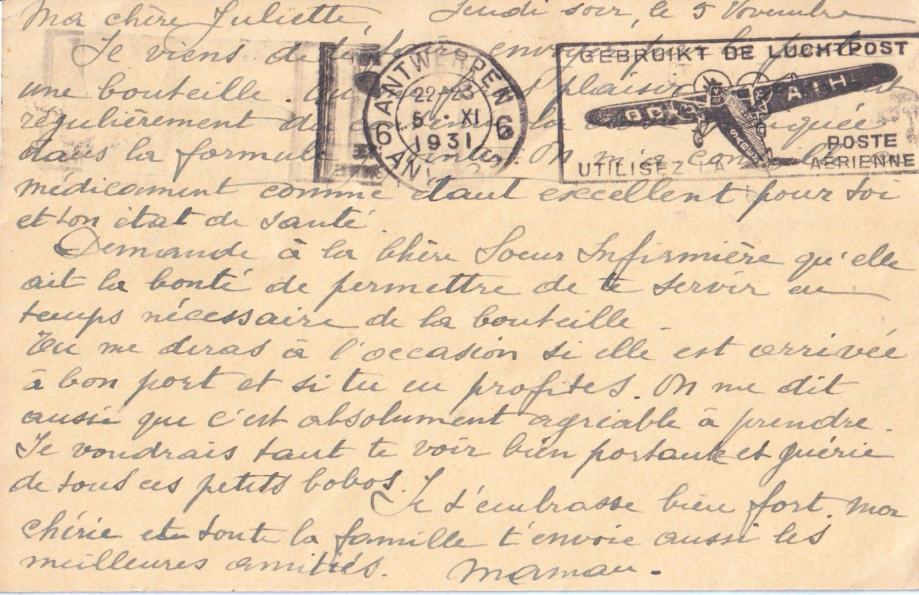 Ma chère Juliette, Jeudi soir, le 5 Novembre
Je viens de envoyer
une bouteille plaisir
régulièrement
dans la formule On m'a
médicament comme étant excellent pour toi
et ton état de santé.
Demande à la Chère Soeur Infirmière qu'elle
ait la bonté de permettre de te servir en
temps nécessaire de la bouteille.
Tu me diras à l'occasion si elle est arrivée
à bon port et si tu en profites. On me dit
aussi que c'est absolument agréable à prendre.
Je voudrais tant te voir bien portante et guérie
de tous ces petits bobos.
Je t'embrasse bien fort, ma
chérie et toute la famille t'envoie aussi les
meilleures amitiés. Maman.
ANTWERPEN
22-23
5 - XI
1931
6 6
ANVERS
GEBRUIKT DE LUCHTPOST
UTILISEZ LA
POSTE
AÉRIENNE